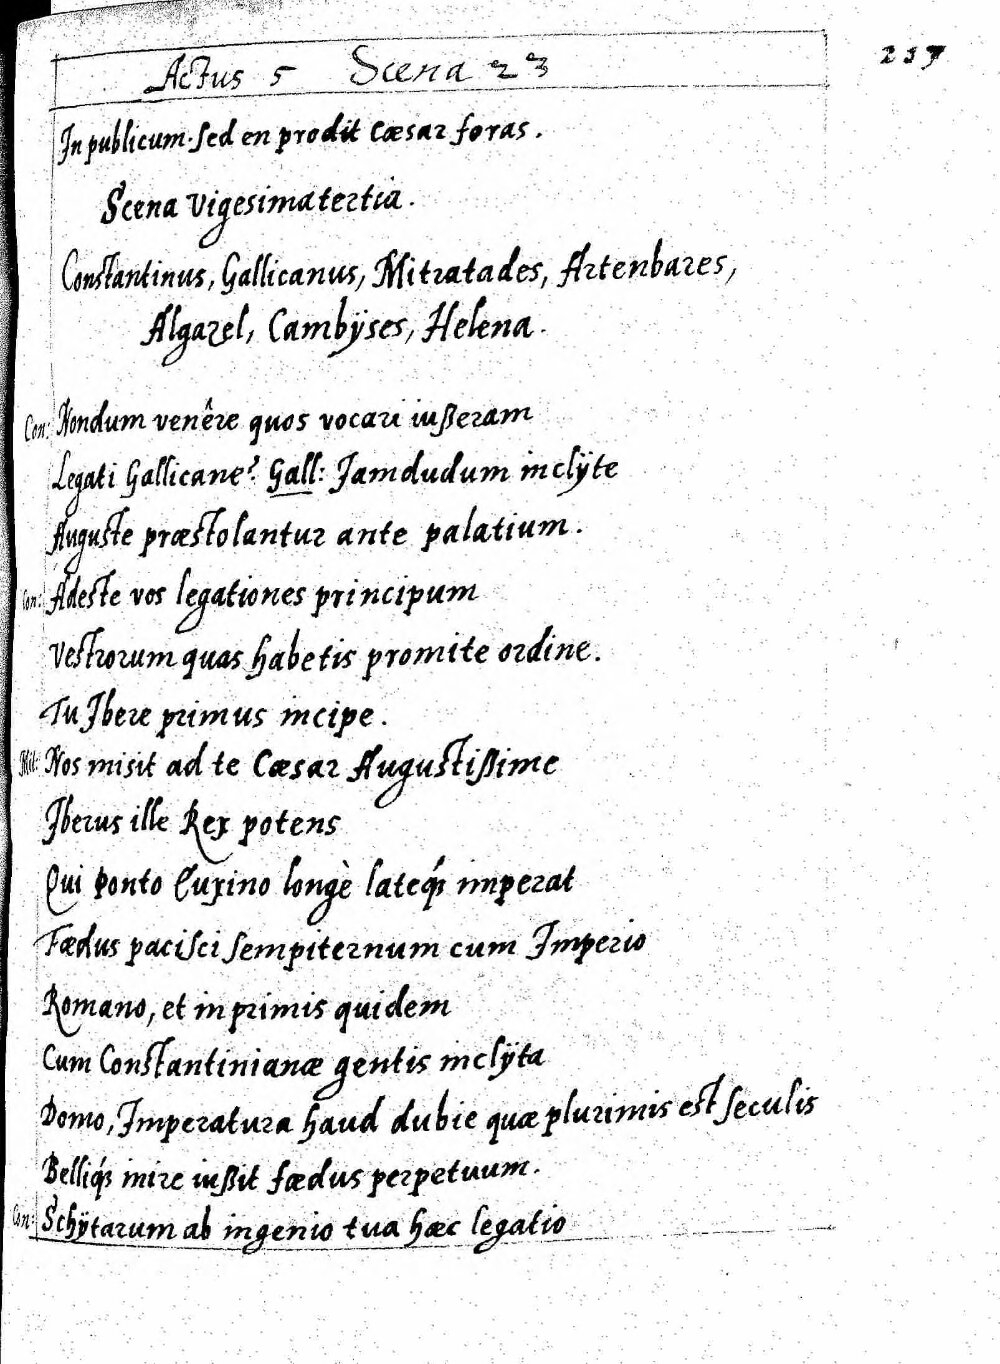 Actus 5 Scena 23
237
In publicum. sed en prodit Cæsar foras.
Scena Vigesimatertia.
Constantinus, Gallicanus, Mitratades, Artenbares,
Algazel, Cambÿses, Helena.
Con: Nondum venêre quos vocari iußeram
Legati Gallicane? Gall: Jamdudum inclÿte
Auguste præstolantur ante palatium.
Con: Adeste vos legationes principum
Vestrorum quas habetis promite ordine.
Tu Jbere primus incipe.
Mit: Nos misit ad te Cæsar Augustißime
Jberus ille Rex potens
Qui Ponto Euxino longè lateq́ȝ imperat
Fædus pacisci sempiternum cum Jmperio
Romano, et inprimis quidem
Cum Constantinianæ gentis inclÿta
Domo, Jmperatura haud dubie quæ plurimis est seculis
Belliq́ȝ inire iußit fædus perpetuum.
Con: Schÿtarum ab ingenio tua hæc legatio